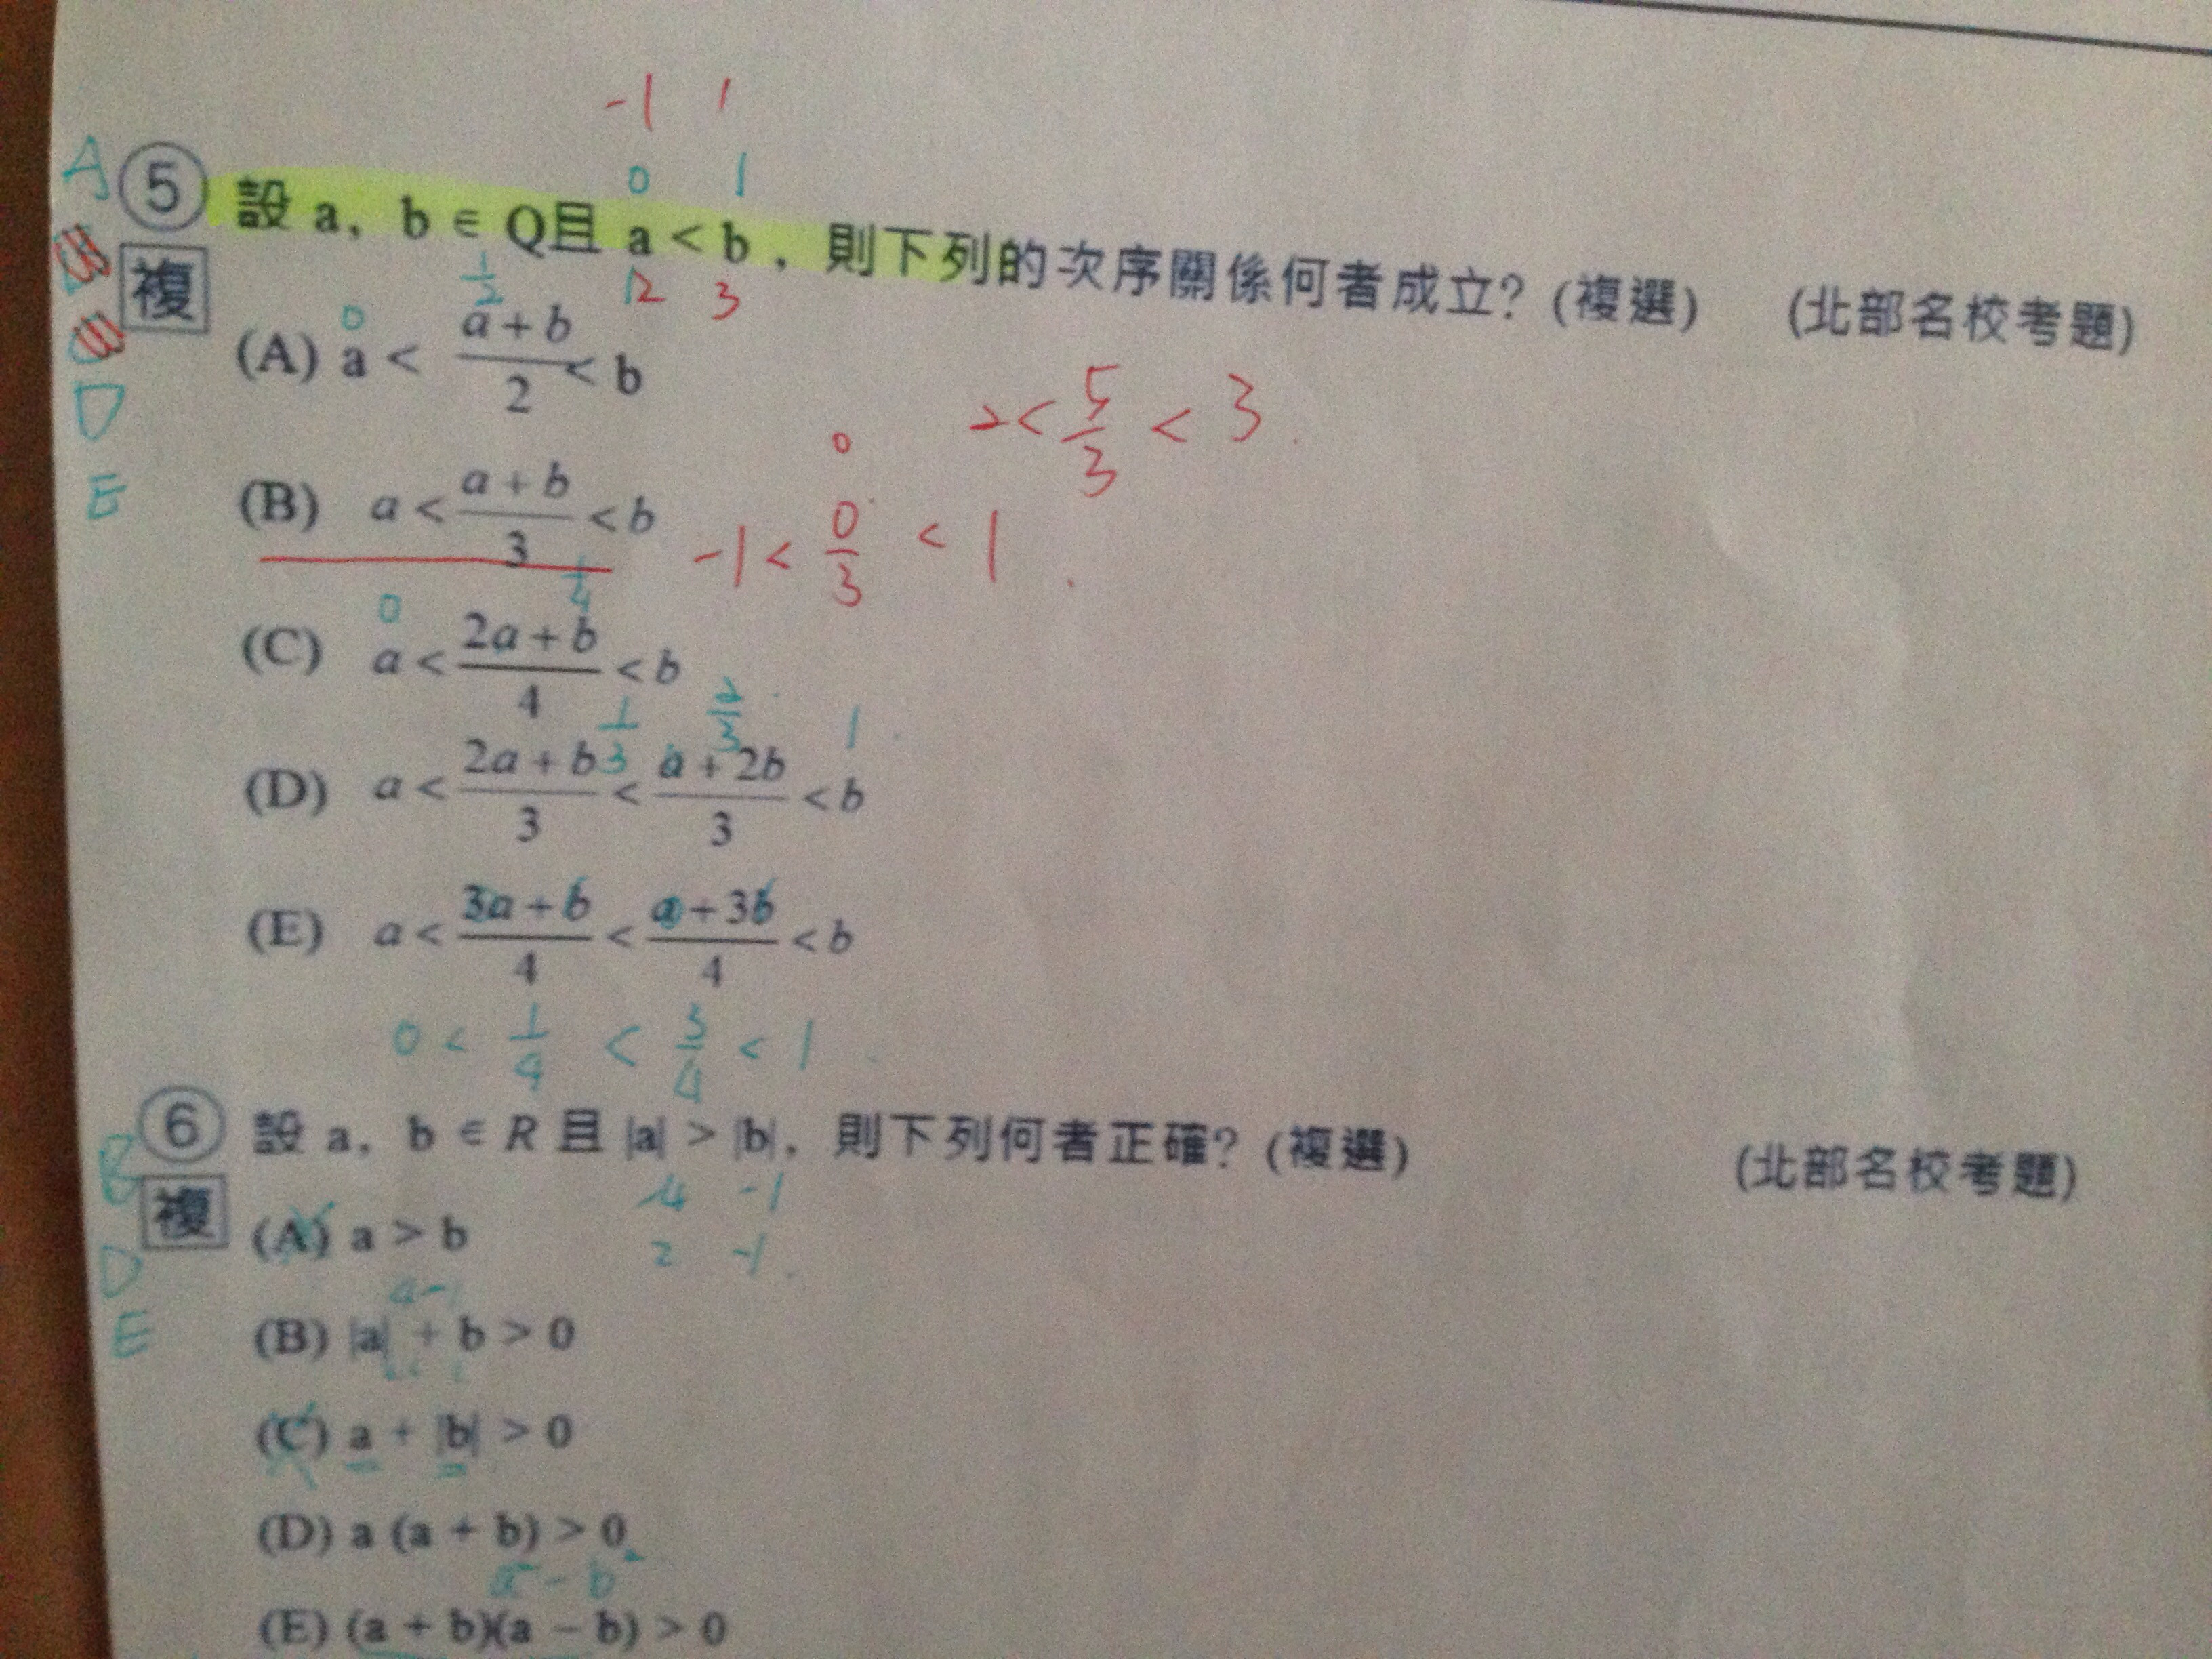 -1 1
0 1
A ⑤ 設 a, b ∈ Q且 a < b , 則下列的次序關係何者成立? (複選) (北部名校考題)
複
1/2 12 3
0
(A) a < (a + b)/2 < b
2 < 5/3 < 3
D
E
(B) a < (a + b)/3 < b
0
-1 < 0/3 < 1
0 1/4
(C) a < (2a + b)/4 < b
1/3 2/3 1
(D) a < (2a + b)/3 < (a + 2b)/3 < b
(E) a < (3a + b)/4 < (a + 3b)/4 < b
0 < 1/4 < 3/4 < 1
⑥ 設 a, b ∈ R 且 |a| > |b|, 則下列何者正確? (複選) (北部名校考題)
B 複
-4 -1
(A) a > b
2 -1
D
E
(B) |a| + b > 0
(C) a + |b| > 0
(D) a (a + b) > 0
a² - b²
(E) (a + b)(a − b) > 0